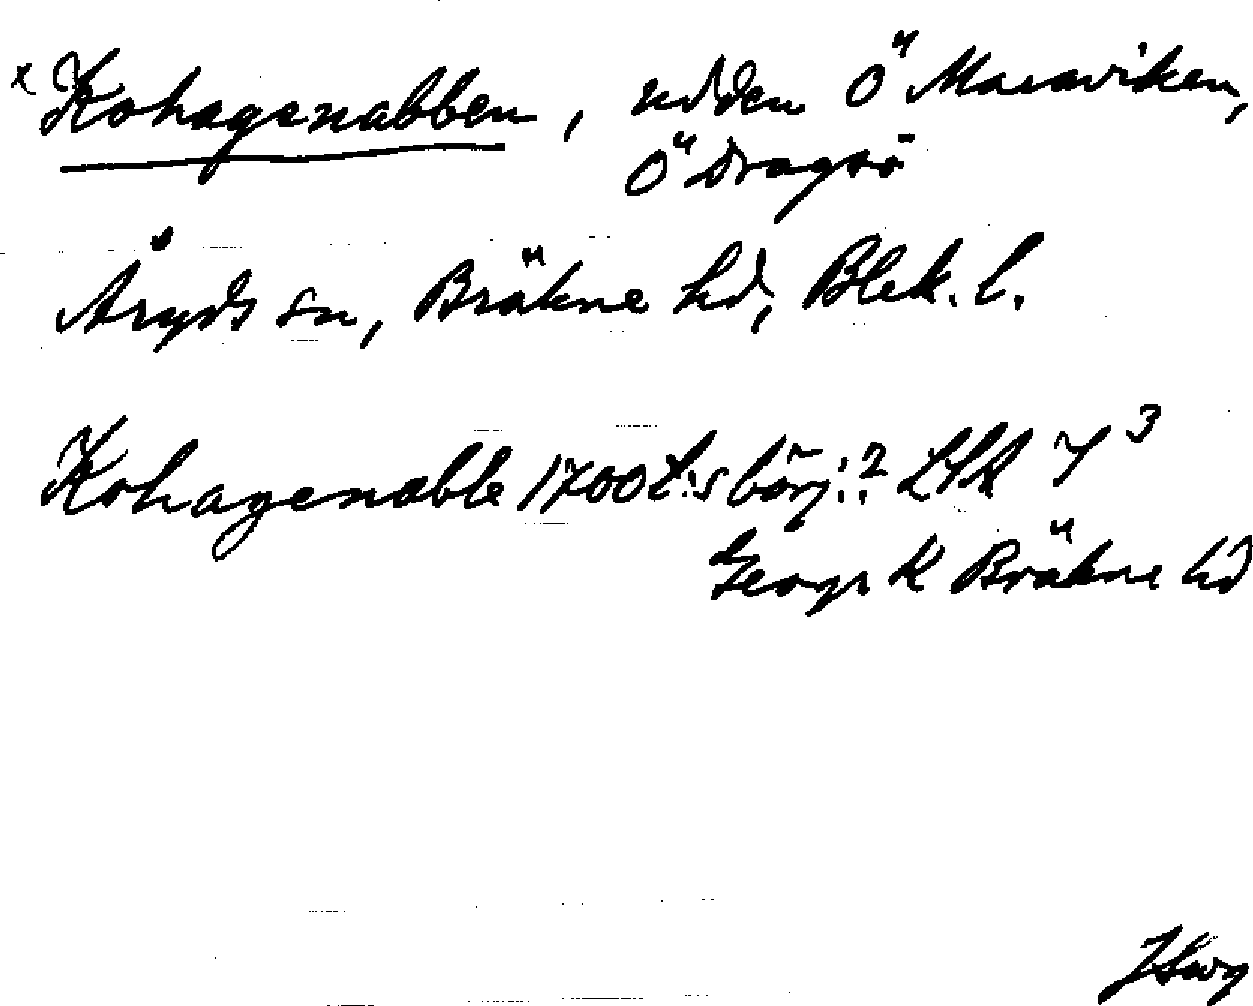 x Kohagenabben, udden Ö Maraviken,
Ö Dragsö
Åryds sn, Bräkne hd, Blek. l.
Kohagenable 1700 t:s börj:? LSA Y3
Geogr K Bräkne hd